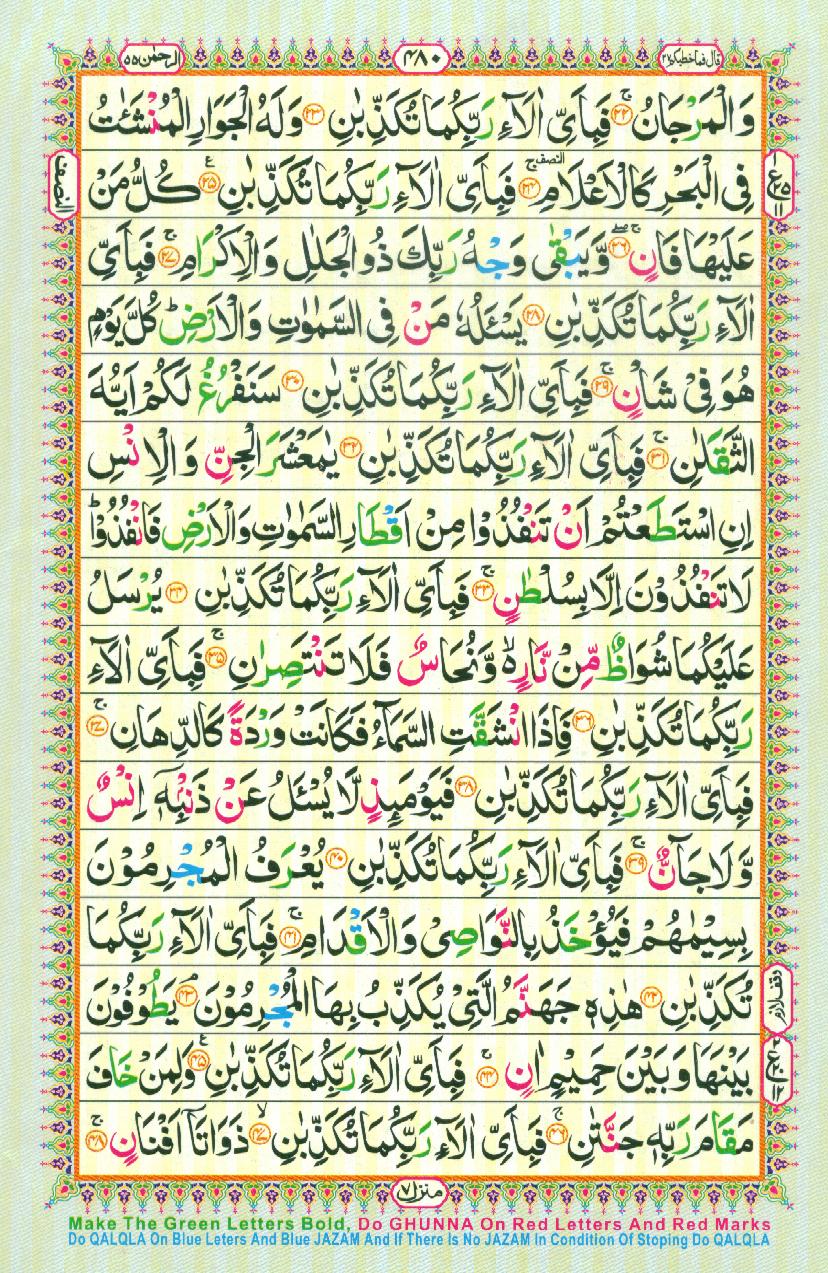 قال فماخطبكم ٢٧ ٤٨٠ الرحمٰن ٥٥
وَالْمَرْجَانُ ۚ﴿۲۲﴾ فَبِاَیِّ اٰلَآءِ رَبِّكُمَا تُكَذِّبٰنِ ﴿۲۳﴾ وَلَهُ الْجَوَارِ الْمُنْشَئٰتُ
فِی الْبَحْرِ كَالْاَعْلَامِ ۚ﴿۲۴﴾ فَبِاَیِّ اٰلَآءِ رَبِّكُمَا تُكَذِّبٰنِ ﴿۲۵﴾ كُلُّ مَنْ
النصف
عَلَیْهَا فَانٍ ۚۖ﴿۲۶﴾ وَّیَبْقٰی وَجْهُ رَبِّكَ ذُو الْجَلٰلِ وَالْاِكْرَامِ ۚ﴿۲۷﴾ فَبِاَیِّ
اٰلَآءِ رَبِّكُمَا تُكَذِّبٰنِ ﴿۲۸﴾ یَسْـَٔلُهٗ مَنْ فِی السَّمٰوٰتِ وَالْاَرْضِ ؕ كُلَّ یَوْمٍ
هُوَ فِیْ شَاْنٍ ۚ﴿۲۹﴾ فَبِاَیِّ اٰلَآءِ رَبِّكُمَا تُكَذِّبٰنِ ﴿۳۰﴾ سَنَفْرُغُ لَكُمْ اَیُّهَ
الثَّقَلٰنِ ۚ﴿۳۱﴾ فَبِاَیِّ اٰلَآءِ رَبِّكُمَا تُكَذِّبٰنِ ﴿۳۲﴾ یٰمَعْشَرَ الْجِنِّ وَالْاِنْسِ
اِنِ اسْتَطَعْتُمْ اَنْ تَنْفُذُوْا مِنْ اَقْطَارِ السَّمٰوٰتِ وَالْاَرْضِ فَانْفُذُوْا ؕ
لَا تَنْفُذُوْنَ اِلَّا بِسُلْطٰنٍ ۚ﴿۳۳﴾ فَبِاَیِّ اٰلَآءِ رَبِّكُمَا تُكَذِّبٰنِ ﴿۳۴﴾ یُرْسَلُ
عَلَیْكُمَا شُوَاظٌ مِّنْ نَّارٍ ۙ۬ وَّنُحَاسٌ فَلَا تَنْتَصِرٰنِ ۚ﴿۳۵﴾ فَبِاَیِّ اٰلَآءِ
رَبِّكُمَا تُكَذِّبٰنِ ﴿۳۶﴾ فَاِذَا انْشَقَّتِ السَّمَآءُ فَكَانَتْ وَرْدَةً كَالدِّهَانِ ۚ﴿۳۷﴾
فَبِاَیِّ اٰلَآءِ رَبِّكُمَا تُكَذِّبٰنِ ﴿۳۸﴾ فَیَوْمَىِٕذٍ لَّا یُسْـَٔلُ عَنْ ذَنْۢبِهٖۤ اِنْسٌ
وَّلَا جَآنٌّ ۚ﴿۳۹﴾ فَبِاَیِّ اٰلَآءِ رَبِّكُمَا تُكَذِّبٰنِ ﴿۴۰﴾ یُعْرَفُ الْمُجْرِمُوْنَ
بِسِیْمٰهُمْ فَیُؤْخَذُ بِالنَّوَاصِیْ وَالْاَقْدَامِ ۚ﴿۴۱﴾ فَبِاَیِّ اٰلَآءِ رَبِّكُمَا
تُكَذِّبٰنِ ﴿۴۲﴾ هٰذِهٖ جَهَنَّمُ الَّتِیْ یُكَذِّبُ بِهَا الْمُجْرِمُوْنَ ۘ﴿۴۳﴾ یَطُوْفُوْنَ
وقف لازم
بَیْنَهَا وَبَیْنَ حَمِیْمٍ اٰنٍ ۚ﴿۴۴﴾ فَبِاَیِّ اٰلَآءِ رَبِّكُمَا تُكَذِّبٰنِ ﴿۴۵﴾ وَلِمَنْ خَافَ
مَقَامَ رَبِّهٖ جَنَّتٰنِ ۚ﴿۴۶﴾ فَبِاَیِّ اٰلَآءِ رَبِّكُمَا تُكَذِّبٰنِ ۙ﴿۴۷﴾ ذَوَاتَاۤ اَفْنَانٍ ۚ﴿۴۸﴾
منزل ٧
Make The Green Letters Bold, Do GHUNNA On Red Letters And Red Marks
Do QALQLA On Blue Leters And Blue JAZAM And If There Is No JAZAM In Condition Of Stoping Do QALQLA